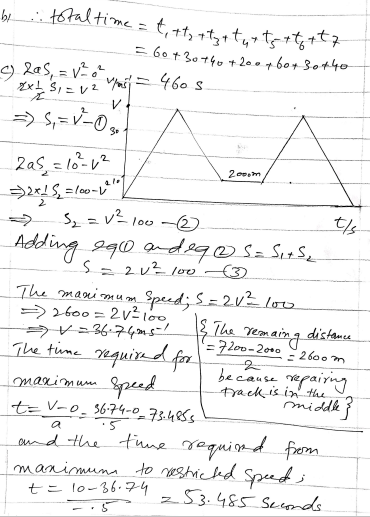 b) ∴ total time = t₁+t₂+t₃+t₄+t₅+t₆+t7
= 60+30+40+200+60+30+40
= 460 s
c) 2aS₁ = V²-0²
2×½ S₁ = V²
⇒ S₁ = V² — ①
2aS₂ = 10²-V²
⇒ 2×½ S₂ = 100-V²
⇒ S₂ = V²-100 — ②
V/ms⁻¹
V
30
10
2000m
t/s
Adding eq① and eq② S = S₁+S₂
S = 2V²-100 — ③
The maximum Speed; S = 2V²-100
⇒ 2600 = 2V²-100
⇒ V = 36.74ms⁻¹
{ The remaing distance
= 7200-2000 / 2 = 2600 m
because repairing
track is in the
middle }
The time required for
maximum Speed
t = V-0 / a = 36.74-0 / .5 = 73.485s
and the time required from
maximum to restricted speed;
t = 10-36.74 / -.5 = 53.485 seconds